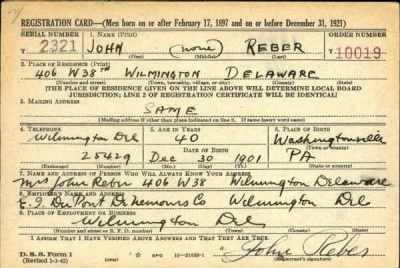 REGISTRATION CARD—(Men born on or after February 17, 1897 and on or before December 31, 1921)
SERIAL NUMBER 1. NAME (Print) ORDER NUMBER
T 2321 JOHN (none) REBER T 10019
(First) (Middle) (Last)
2. PLACE OF RESIDENCE (Print)
406 W 38TH WILMINGTON DELAWARE
(Number and street) (Town, township, village, or city) (County) (State)
[THE PLACE OF RESIDENCE GIVEN ON THE LINE ABOVE WILL DETERMINE LOCAL BOARD
JURISDICTION; LINE 2 OF REGISTRATION CERTIFICATE WILL BE IDENTICAL]
3. MAILING ADDRESS
SAME
(Mailing address if other than place indicated on line 2. If same insert word same)
4. TELEPHONE 5. AGE IN YEARS 6. PLACE OF BIRTH
Wilmington Del 40 Washingtonville
DATE OF BIRTH (Town or county)
25429 Dec 30 1901 PA
(Exchange) (Number) (Mo.) (Day) (Yr.) (State or country)
7. NAME AND ADDRESS OF PERSON WHO WILL ALWAYS KNOW YOUR ADDRESS
Mrs John Reber 406 W 38 Wilmington Delaware
8. EMPLOYER'S NAME AND ADDRESS
E. I. Du Pont De Nemours Co Wilmington Del
9. PLACE OF EMPLOYMENT OR BUSINESS
Wilmington Del
(Number and street or R. F. D. number) (Town) (County) (State)
I AFFIRM THAT I HAVE VERIFIED ABOVE ANSWERS AND THAT THEY ARE TRUE.
D. S. S. Form 1
(Revised 1-1-42) (over) GPO John Reber